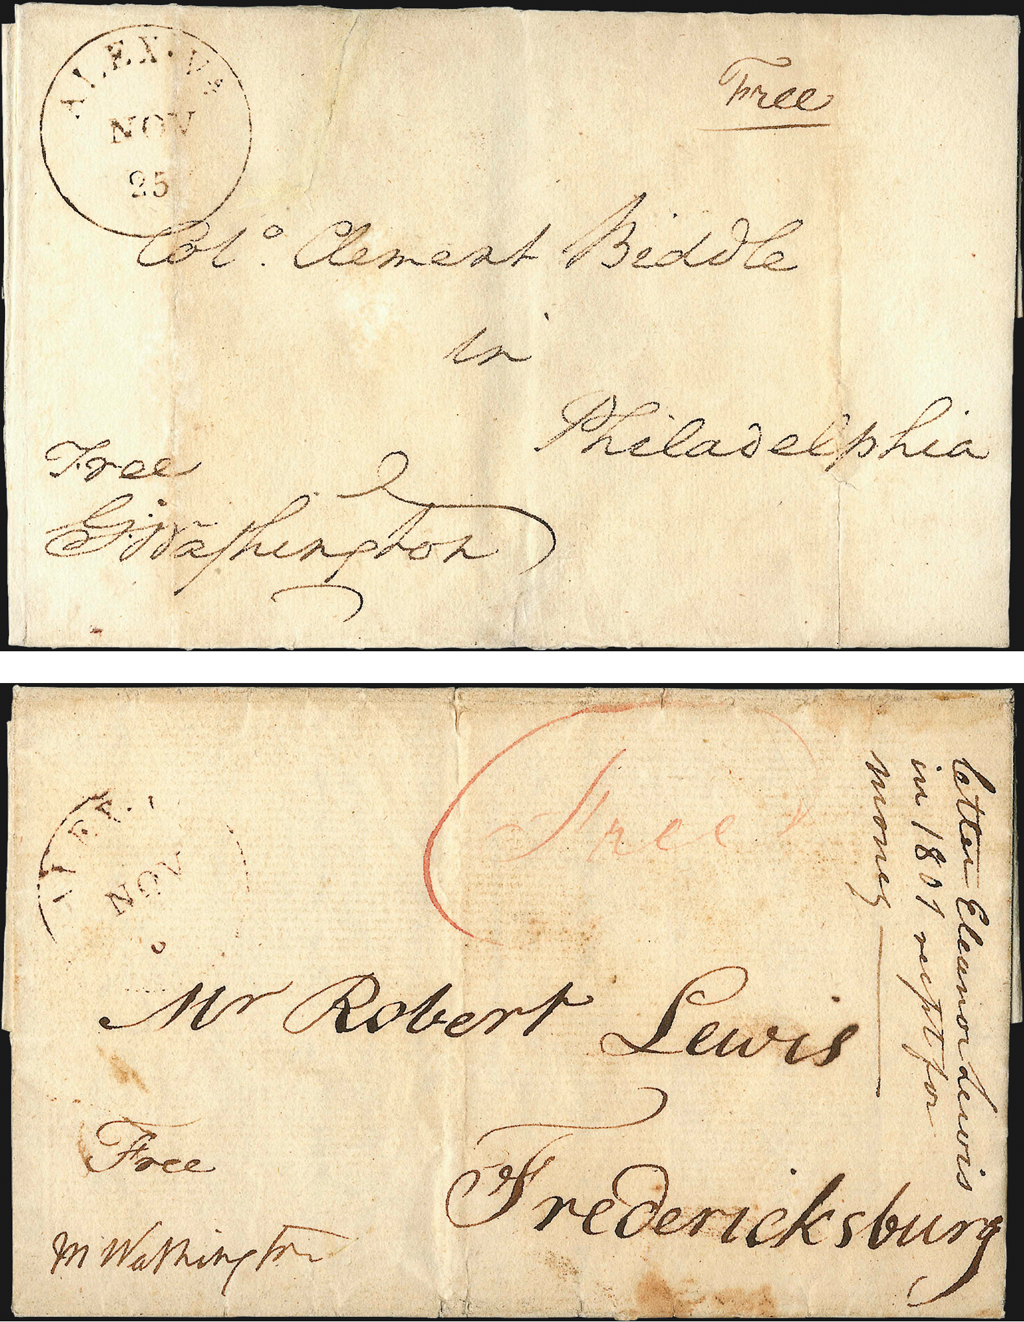 ALEX. Va
NOV
25
Free
Colo. Clement Biddle
in
Philadelphia
Free
G:Washington
ALEX.
NOV
Free
Mr Robert Lewis
Free
Fredericksburg
M Washington
latter Eleanor Lewis
in 1801 recpt for
money